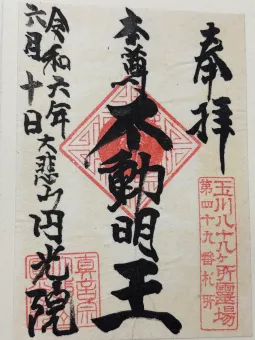 奉拝
玉川八十八ヶ所霊場
第四十九番札所
本尊
不動明王
大悲山円光院
令和六年
六月十日